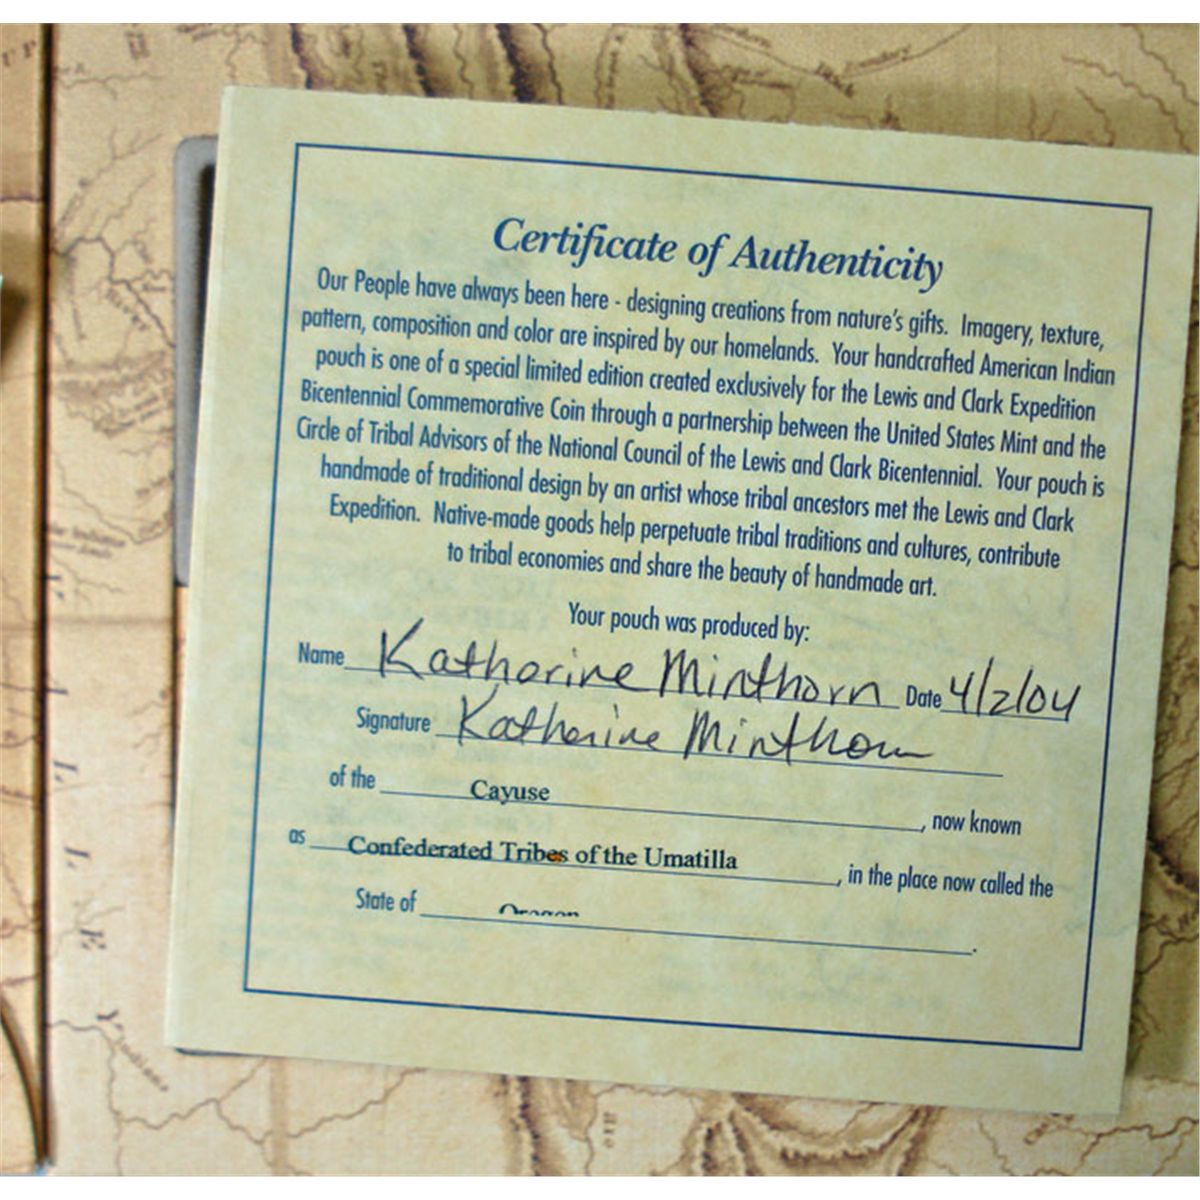 Certificate of Authenticity
Our People have always been here - designing creations from nature's gifts. Imagery, texture,
pattern, composition and color are inspired by our homelands. Your handcrafted American Indian
pouch is one of a special limited edition created exclusively for the Lewis and Clark Expedition
Bicentennial Commemorative Coin through a partnership between the United States Mint and the
Circle of Tribal Advisors of the National Council of the Lewis and Clark Bicentennial. Your pouch is
handmade of traditional design by an artist whose tribal ancestors met the Lewis and Clark
Expedition. Native-made goods help perpetuate tribal traditions and cultures, contribute
to tribal economies and share the beauty of handmade art.
Your pouch was produced by:
Name Katherine Minthorn Date 4/2/04
Signature Katherine Minthorn
of the Cayuse , now known
as Confederated Tribes of the Umatilla , in the place now called the
State of Oregon .